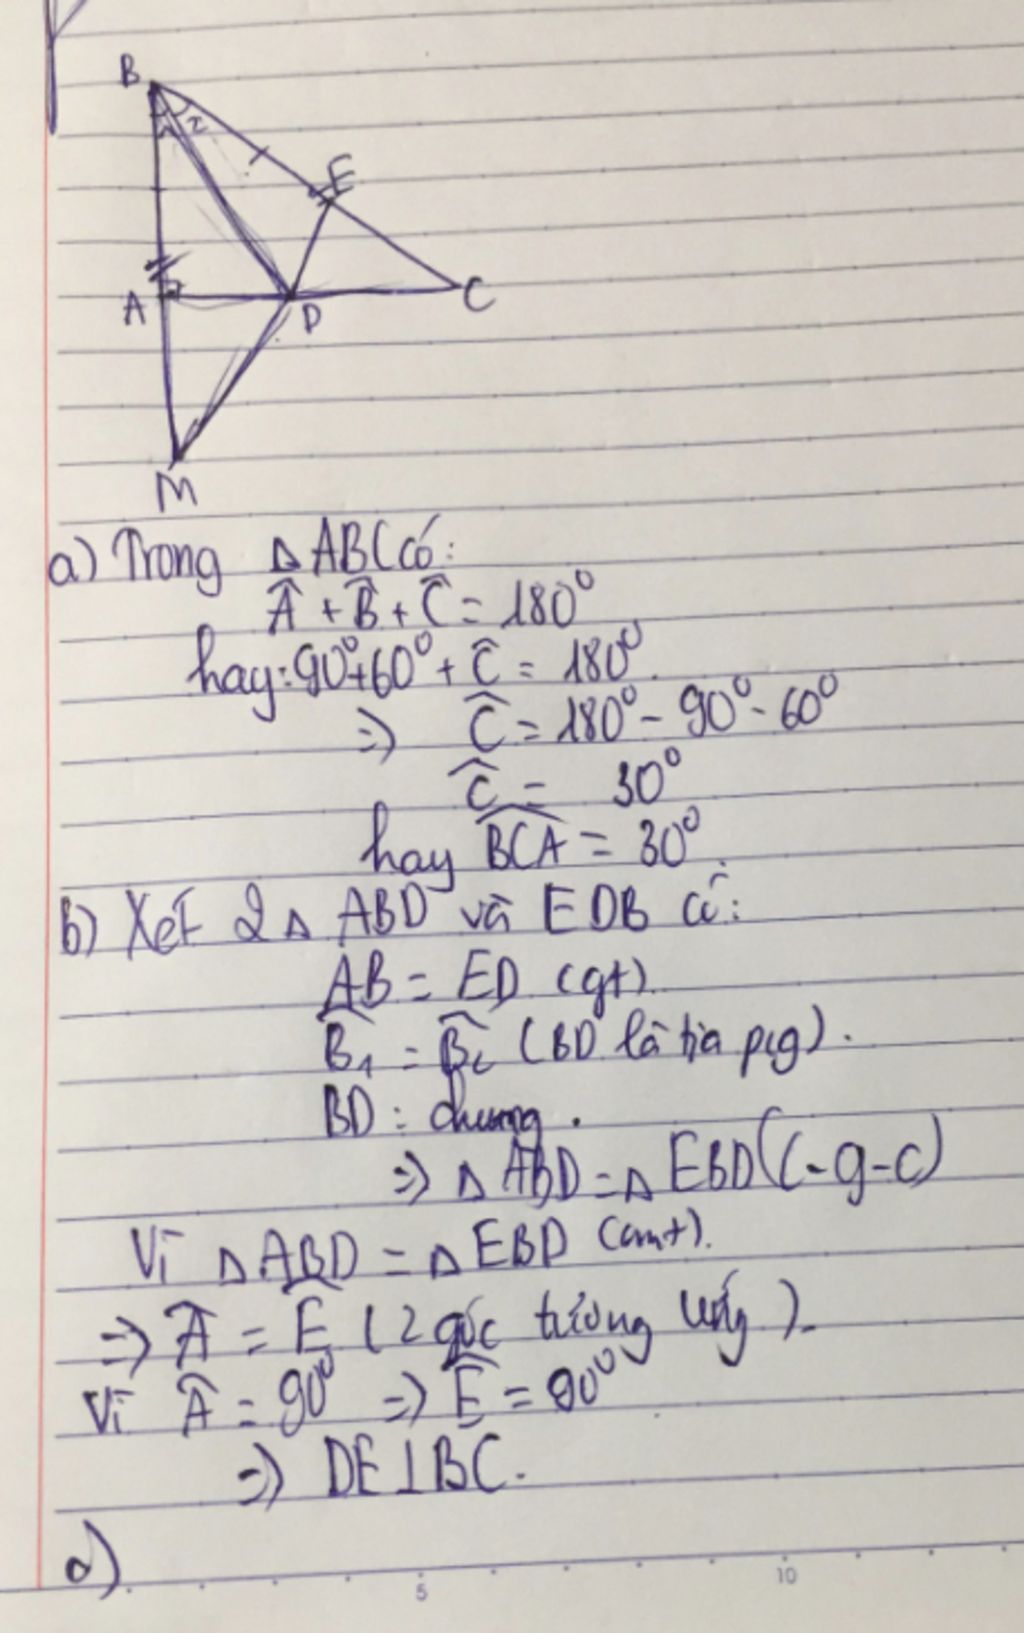 B
2
E
A
D
C
M
a) Trong Δ ABC có:
Â + B̂ + Ĉ = 180⁰
hay: 90⁰ + 60⁰ + Ĉ = 180⁰.
=> Ĉ = 180⁰ - 90⁰ - 60⁰
Ĉ = 30⁰
hay BCA = 30⁰.
b) Xét 2 Δ ABD và EDB có:
AB = ED (gt).
B̂₁ = B̂₂ (BD là tia pcg).
BD: chung.
=> Δ ABD = Δ EBD (c-g-c)
Vì Δ ABD = Δ EBD (cmt).
=> Â = Ê (2 góc tương ứng).
Vì Â = 90⁰ => Ê = 90⁰
=> DE ⊥ BC.
5
10